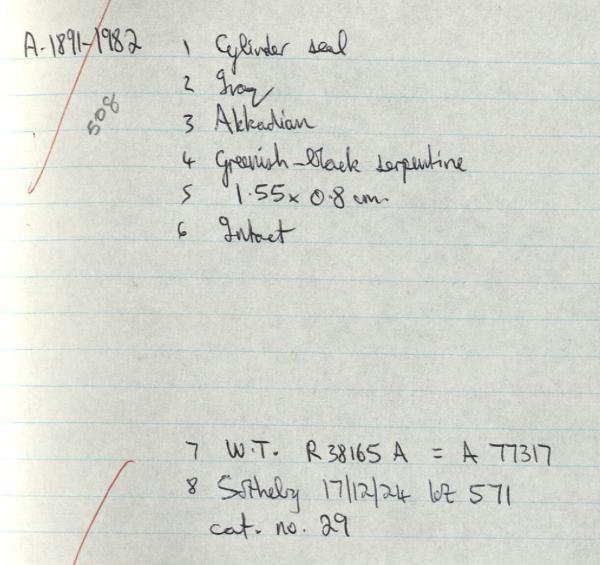 A.1891-1982 1 Cylinder seal
2 Iraq
508
3 Akkadian
4 Greenish-black serpentine
5 1.55 x 0.8 cm.
6 Intact
7 W.T. R38165 A = A 77317
8 Sotheby 17/12/24 lot 571
cat. no. 29